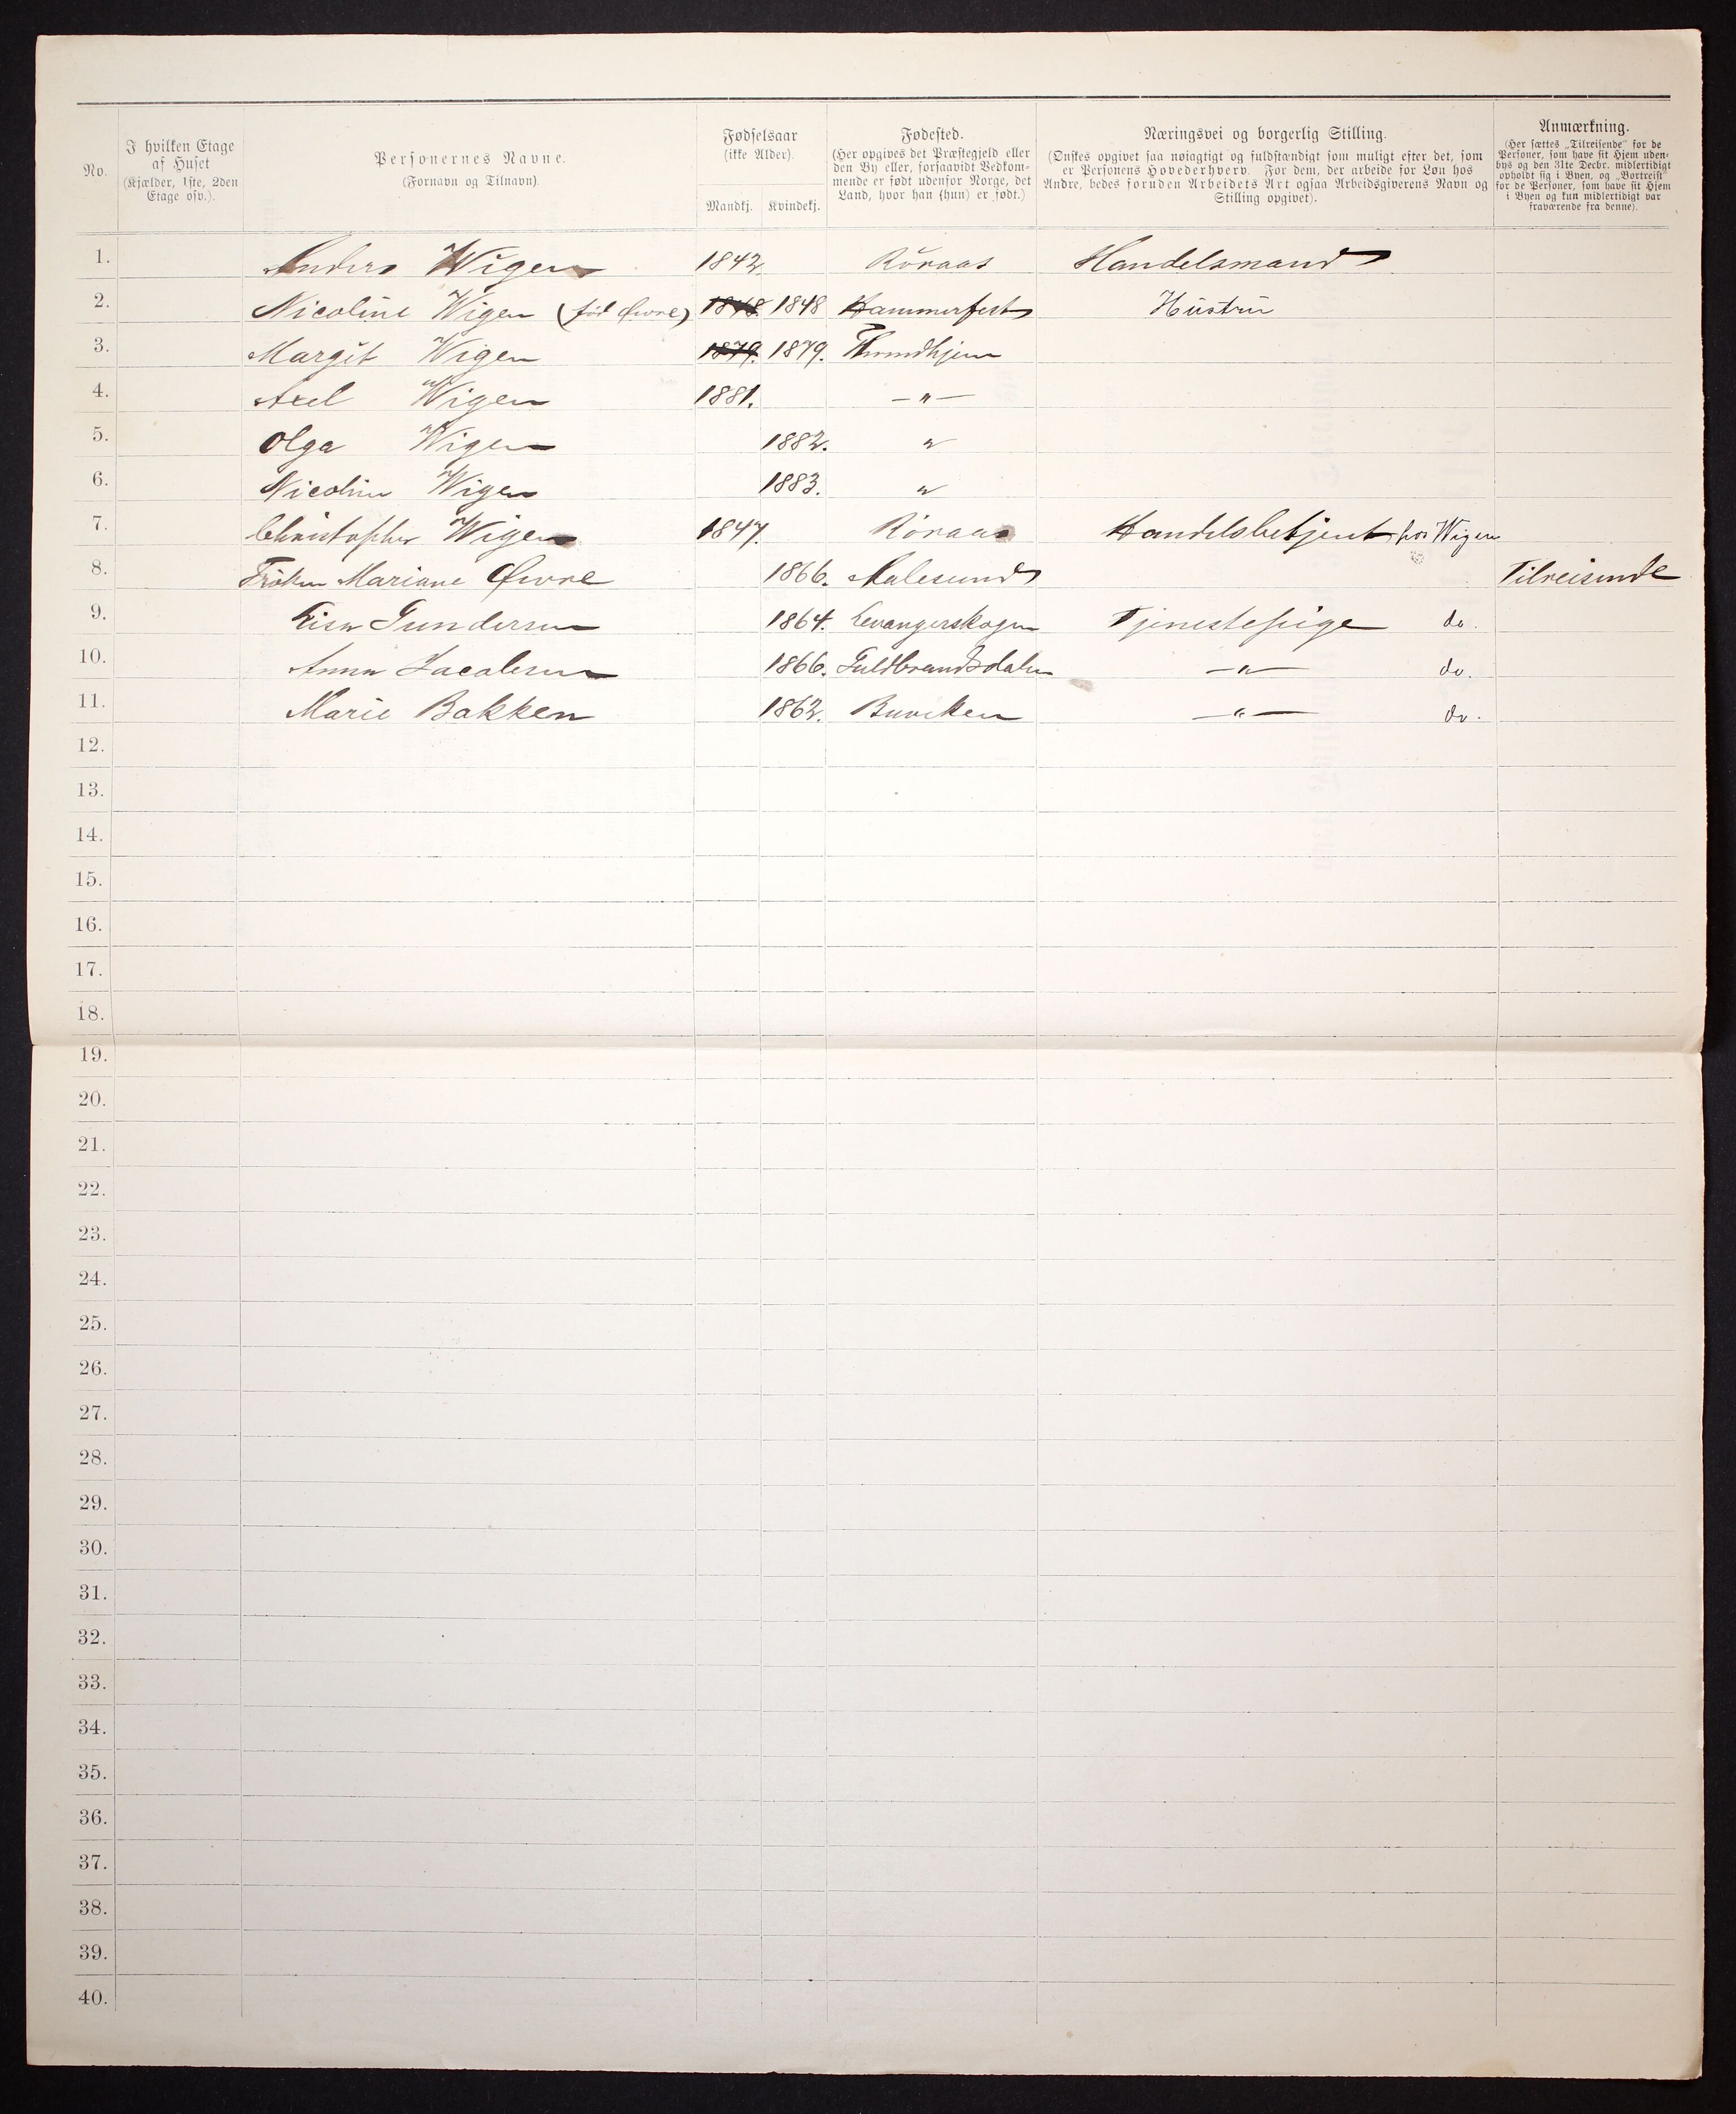 No.
I hvilken Etage
af Huset
(Kjælder, 1ste, 2den
Etage osv.).
Personernes Navne.
(Fornavn og Tilnavn).
Fødselsaar
(ikke Alder).
Mandkj. Kvindekj.
Fødested.
(Her opgives det Præstegjeld eller
den By eller, forsaavidt Vedkom-
mende er født udenfor Norge, det
Land, hvor han (hun) er født.)
Næringsvei og borgerlig Stilling.
(Ønskes opgivet saa nøiagtigt og fuldstændigt som muligt efter det, som
er Personens Hovederhverv. For dem, der arbeide for Løn hos
Andre, bedes foruden Arbeidets Art ogsaa Arbeidsgiverens Navn og
Stilling opgivet).
Anmærkning.
(Her sættes „Tilreisende" for de
Personer, som have sit Hjem uden-
bys og den 31te Decbr. midlertidigt
opholdt sig i Byen, og „Bortreist"
for de Personer, som have sit Hjem
i Byen og kun midlertidigt var
fraværende fra denne).
1. Anders Wigen 1842. Röraas Handelsmand
2. Nicoline Wigen (föd Øwre) 1848. 1848 Hammerfest Hüstrü
3. Margit Wigen 1879. 1879. Throndhjem
4. Axel Wigen 1881. — " —
5. Olga Wigen 1882. "
6. Nicoline Wigen 1883. "
7. Christopher Wigen 1847. Röraas Handelsbetjent hos Wigen
8. Fröken Mariane Øwre 1866. Aalesund Tilreisende
9. Lisa Gundersen 1864. Levangerskogen Tjenestepige do.
10. Anna Jacobsen 1866. Guldbrandsdalen — " — do.
11. Marie Bakken 1862. Buviken — " — do.
12.
13.
14.
15.
16.
17.
18.
19.
20.
21.
22.
23.
24.
25.
26.
27.
28.
29.
30.
31.
32.
33.
34.
35.
36.
37.
38.
39.
40.